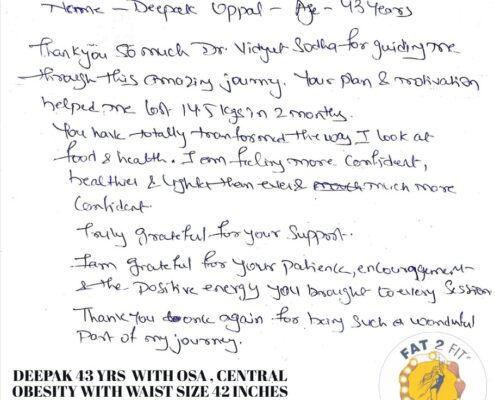 Name - Deepak Oppal - Age - 43 Years
Thankyou so much Dr. Vidyut Sodha for guiding me
through this amazing journey. Your plan & motivation
helped me lost 14.5 kgs in 2 months.
You have totally transformed the way I look at
food & health. I am feeling more confident,
healthier & lighter than ever & much more
confident
Truly grateful for your support.
I am grateful for your patience, encouraggement
& the positive energy you brought to every session
Thank you once again for being such a wonderful
part of my journey.
FAT 2 FIT
DEEPAK 43 YRS WITH OSA , CENTRAL
OBESITY WITH WAIST SIZE 42 INCHES